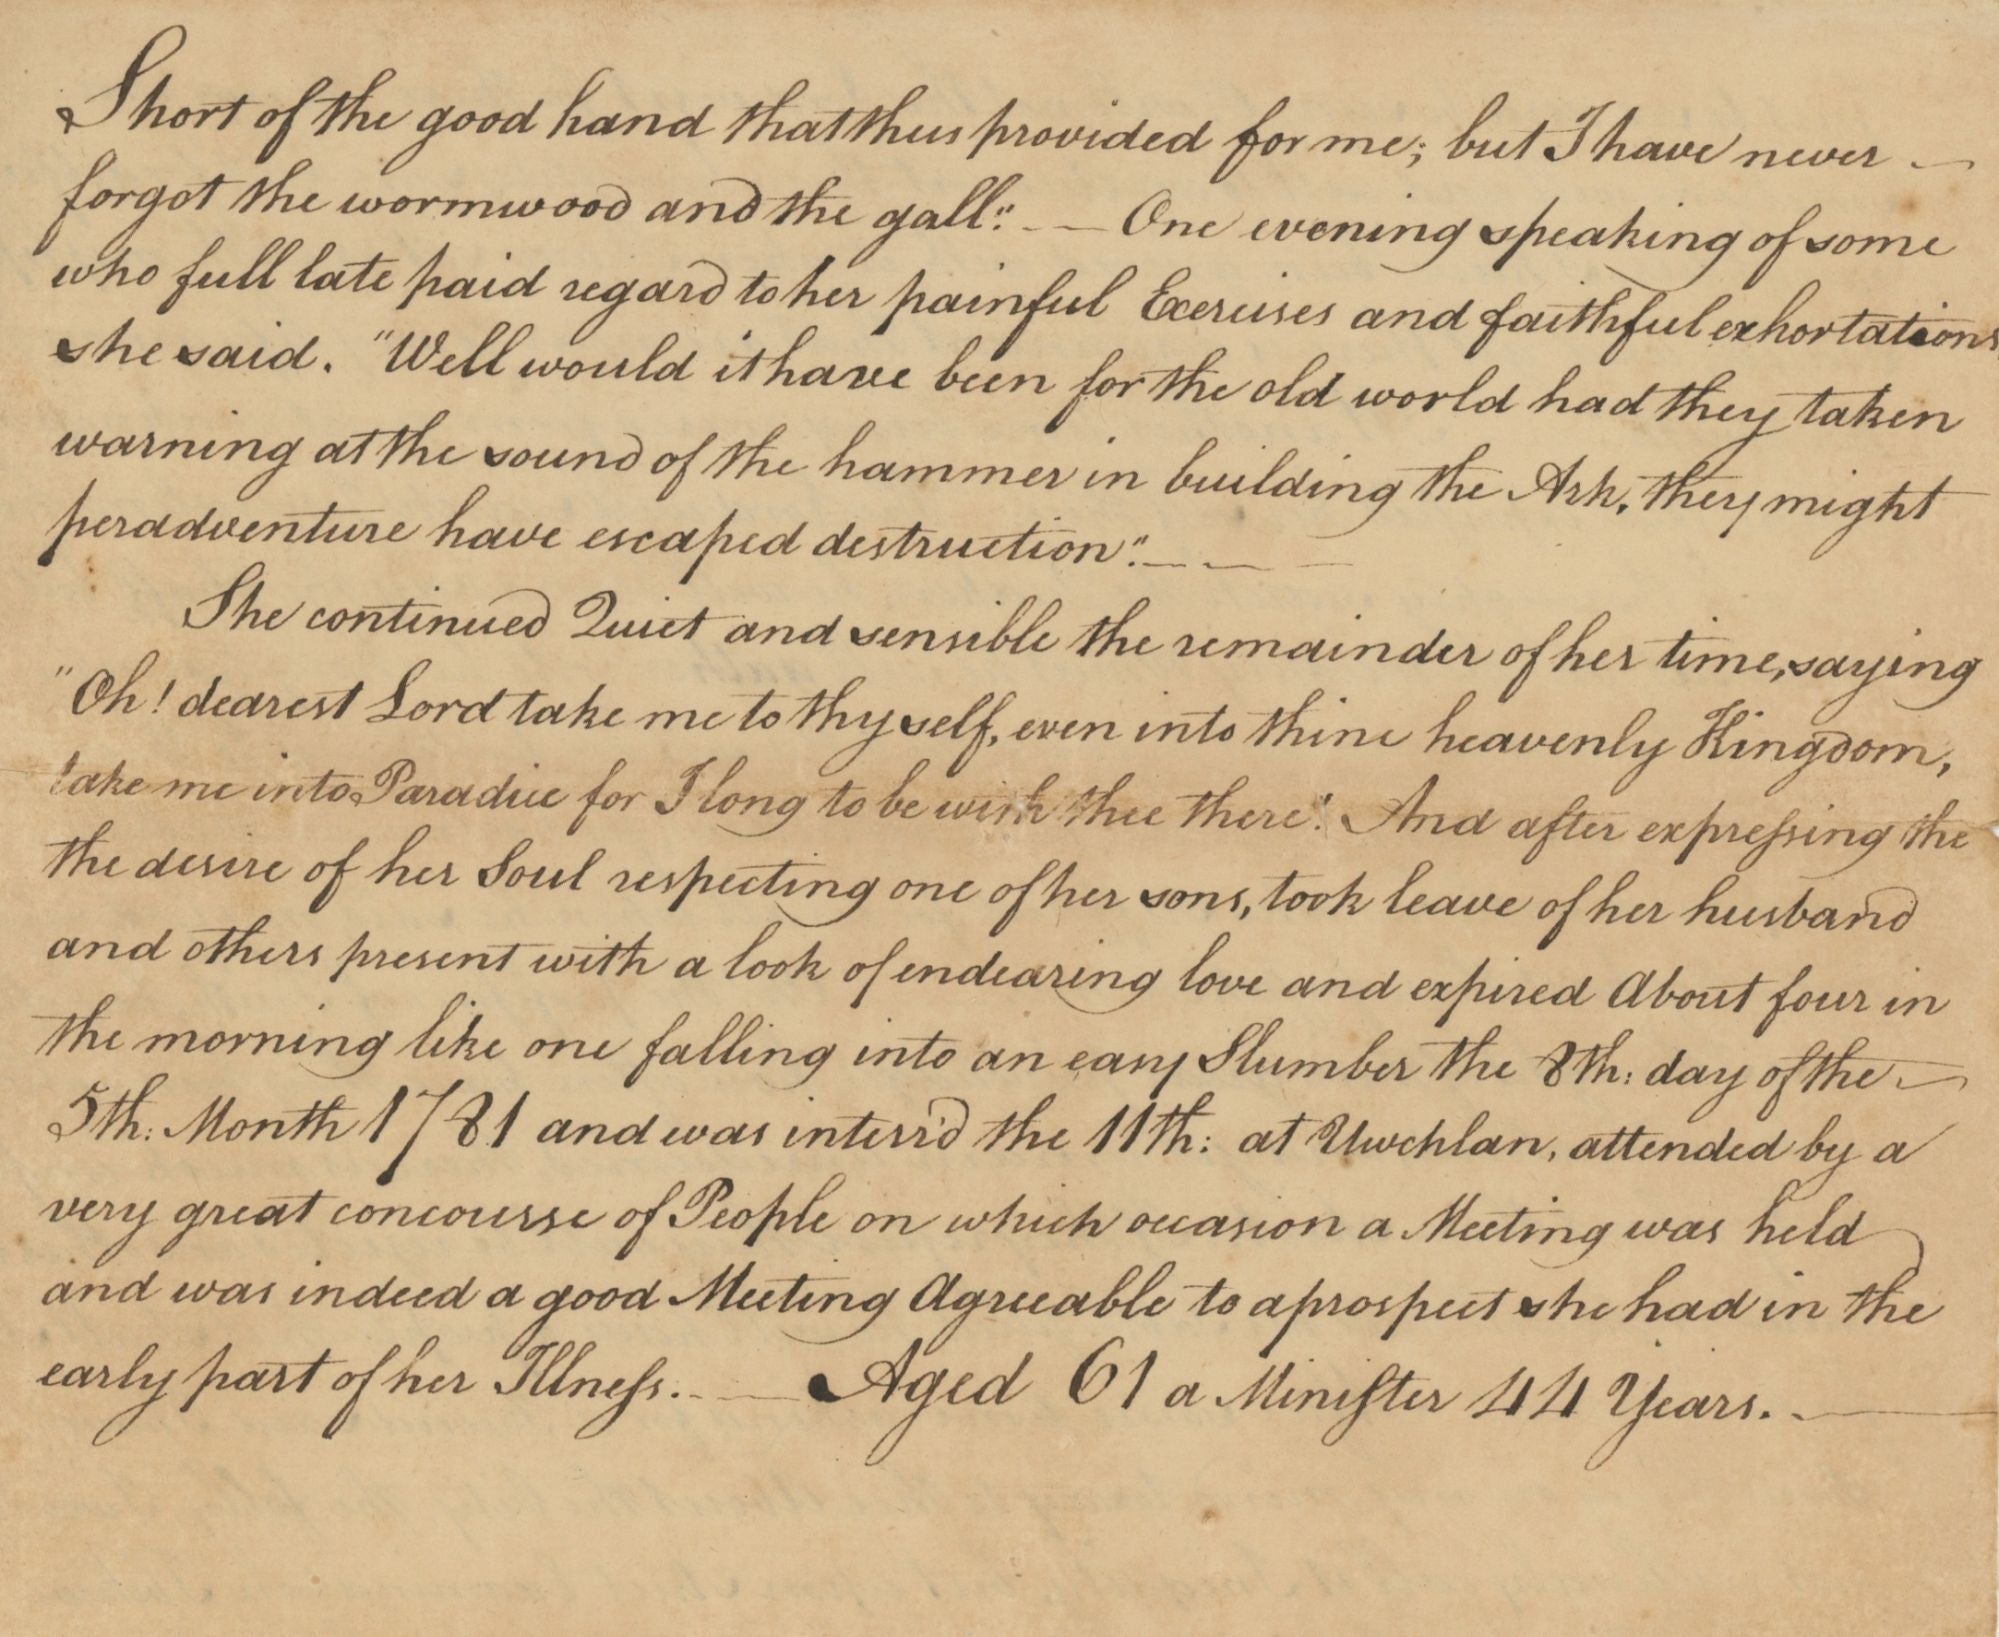 Short of the good hand that thus provided for me; but I have never —
forgot the wormwood and the gall." — — One evening speaking of some
who full late paid regard to her painful Exercises and faithful exhortations
she said. "Well would it have been for the old world had they taken
warning at the sound of the hammer in building the Ark, they might
peradventure have escaped destruction." — — —
She continued Quiet and sensible the remainder of her time, saying
"Oh! dearest Lord take me to thy self, even into thine heavenly Kingdom,
take me into Paradice for I long to be with thee there". And after expreſsing the
the desire of her Soul respecting one of her sons, took leave of her husband
and others present with a look of endearing love and expired About four in
the morning like one falling into an easy Slumber the 8th: day of the —
5th: Month 1781 and was interr'd the 11th: at Uwchlan, attended by a
very great concourse of People on which occasion a Meeting was held
and was indeed a good Meeting Agreeable to a prospect she had in the
early part of her Illneſs. — — Aged 61 a Miniſter 44 Years. —